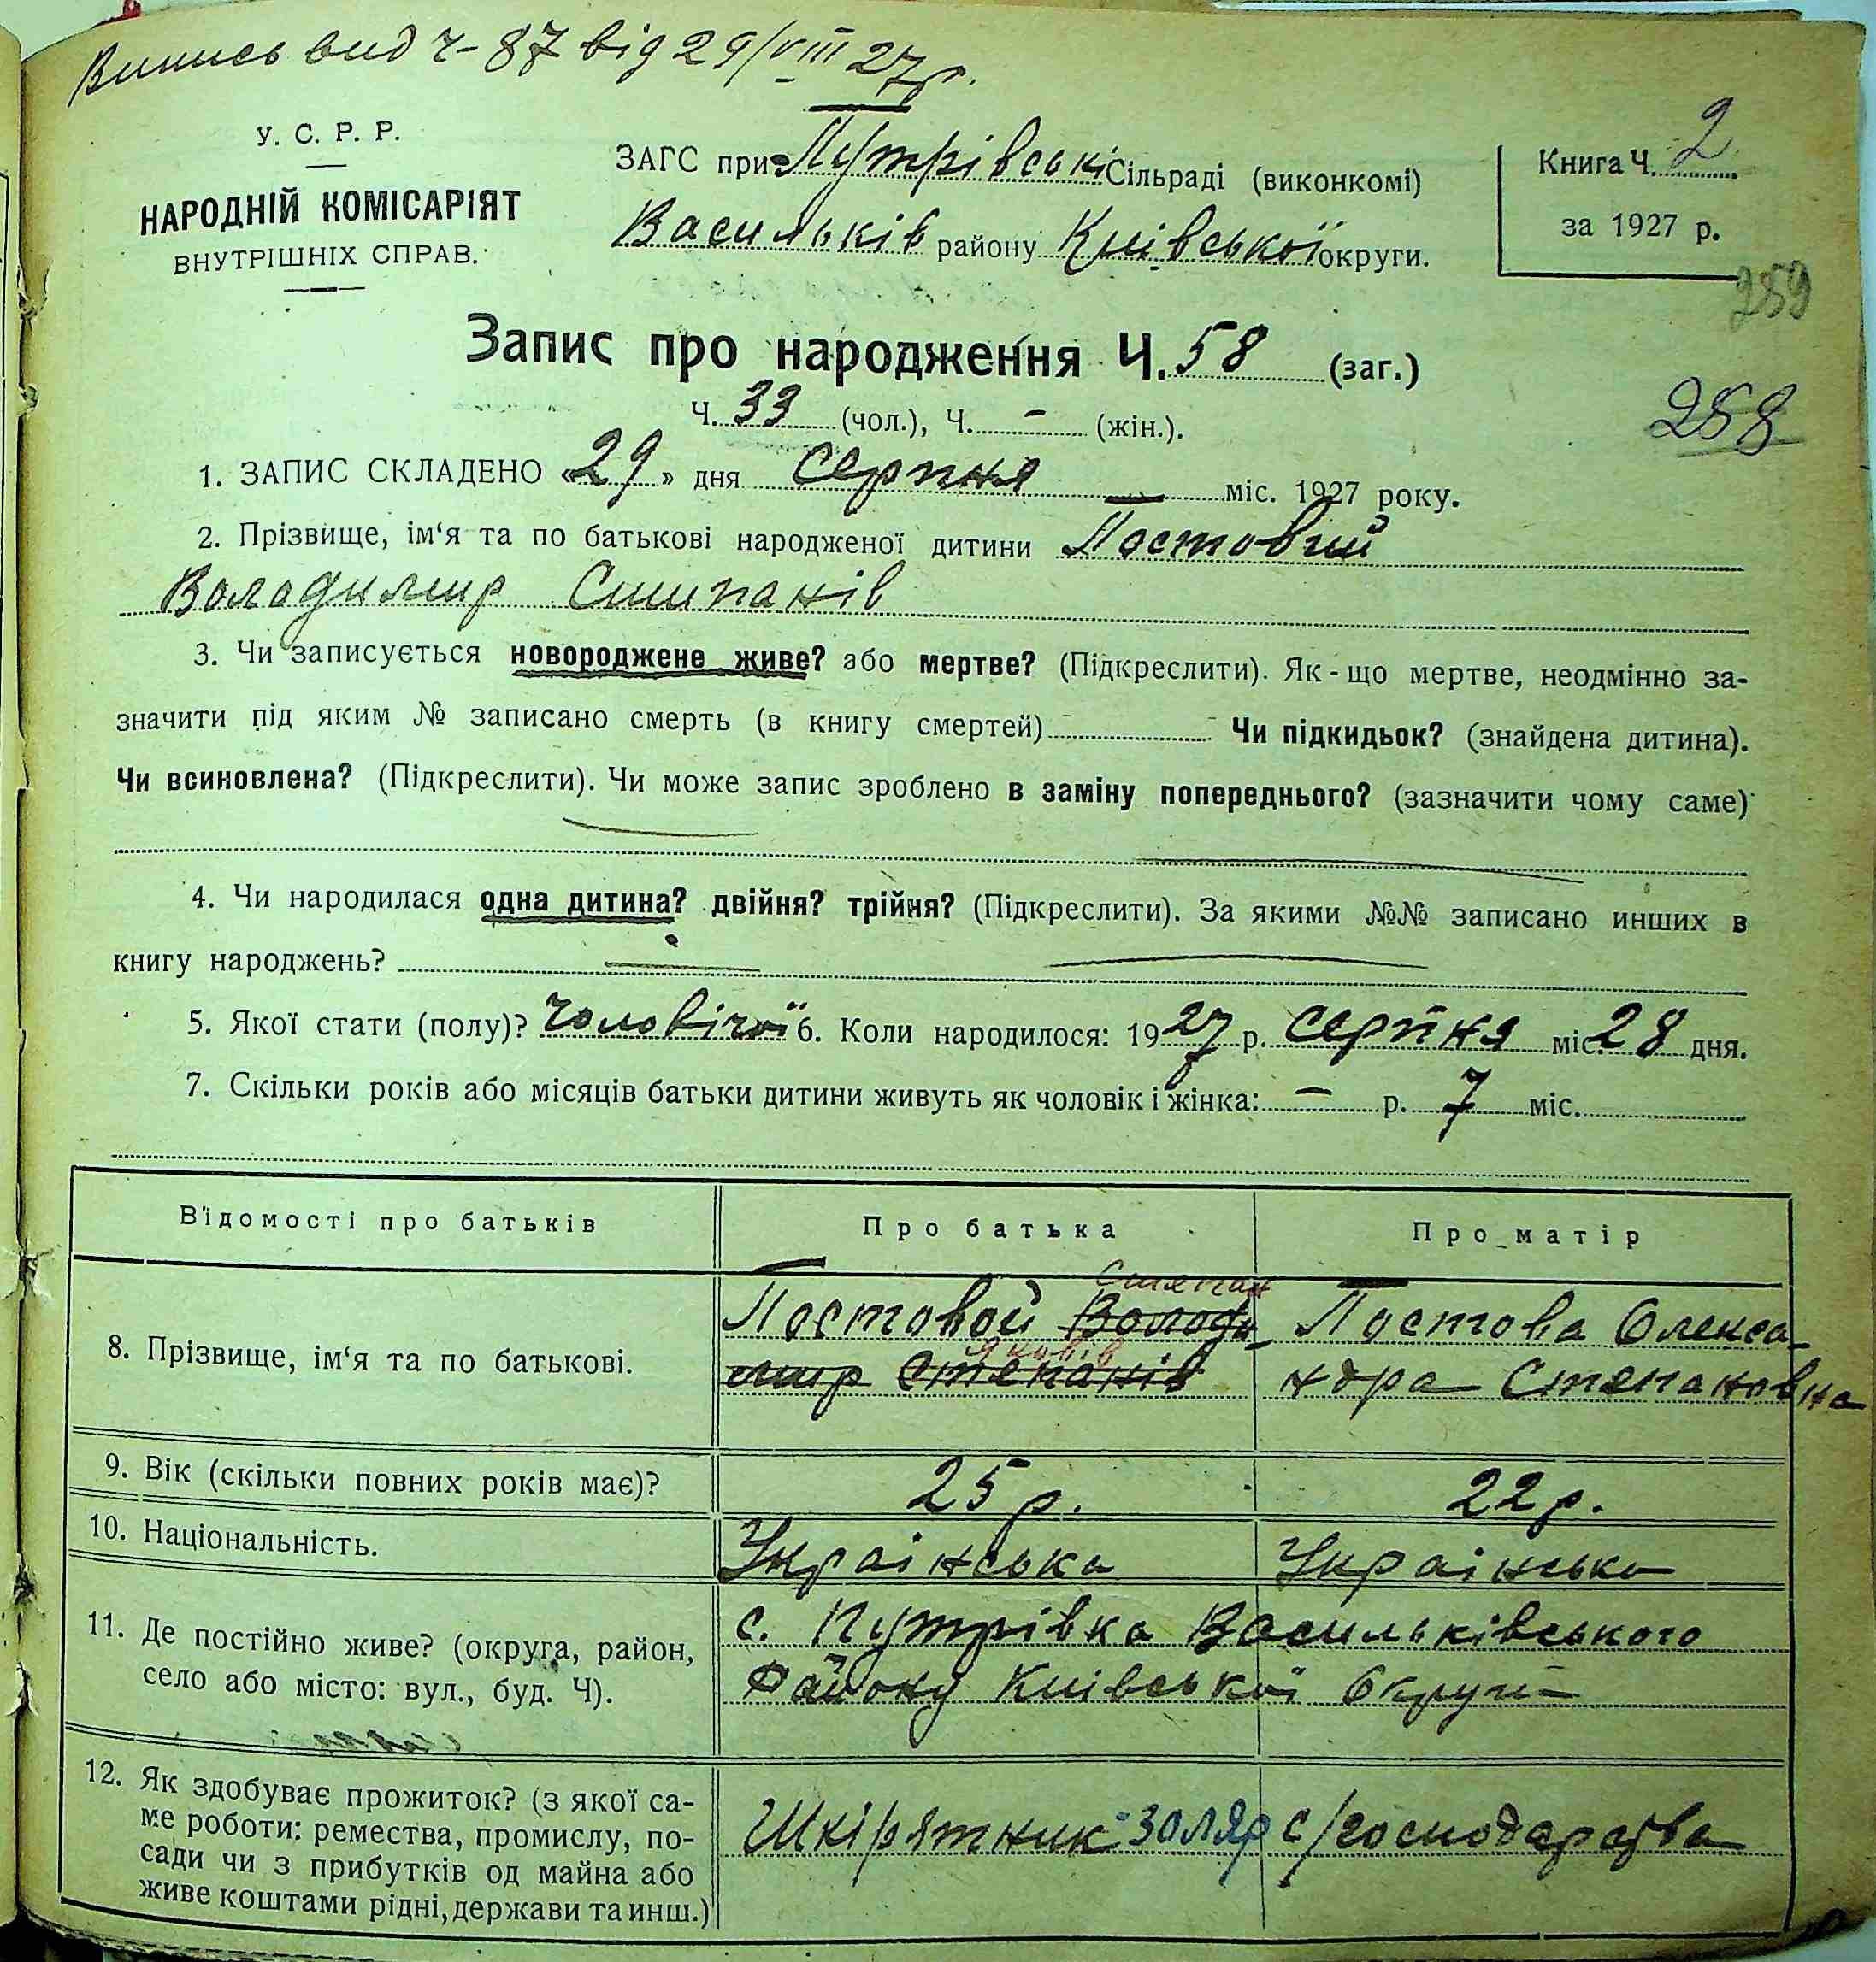 Випись вид ч-87 від 29/VIII 27р.
У. С. Р. Р.
НАРОДНІЙ КОМІСАРІЯТ
ВНУТРІШНІХ СПРАВ.
ЗАГС при Путрівські Сільраді (виконкомі)
Васильків району Київської округи.
Книга Ч. 2
за 1927 р.
259
Запис про народження Ч. 58 (заг.)
258
Ч. 33 (чол.), Ч. - (жін.).
1. ЗАПИС СКЛАДЕНО «29» дня серпня міс. 1927 року.
2. Прізвище, ім‘я та по батькові народженої дитини Постовий
Володимир Стипанів
3. Чи записується новороджене живе? або мертве? (Підкреслити). Як-що мертве, неодмінно за-
значити під яким № записано смерть (в книгу смертей) - Чи підкидьок? (знайдена дитина).
Чи всиновлена? (Підкреслити). Чи може запис зроблено в заміну попереднього? (зазначити чому саме)
4. Чи народилася одна дитина? двійня? трійня? (Підкреслити). За якими №№ записано инших в
книгу народжень?
5. Якої стати (полу)? Чоловічої 6. Коли народилося: 1927 р. серпня міс. 28 дня.
7. Скільки років або місяців батьки дитини живуть як чоловік і жінка: - р. 7 міс.
Відомості про батьків Про батька Про матір
8. Прізвище, ім‘я та по батькові.
Степан
Постовой Володи-
Яковів
мир Степанів
Постова Олекса-
ндра Степановна
9. Вік (скільки повних років має)? 25 р. 22 р.
10. Національність. Украінська Украінська
11. Де постійно живе? (округа, район,
село або місто: вул., буд. Ч).
с. Путрівка Васильківського
Району Київської Округи
12. Як здобуває прожиток? (з якої са-
ме роботи: ремества, промислу, по-
сади чи з прибутків од майна або
живе коштами рідні, держави та инш.)
Шкірятник-золяр с/господарства